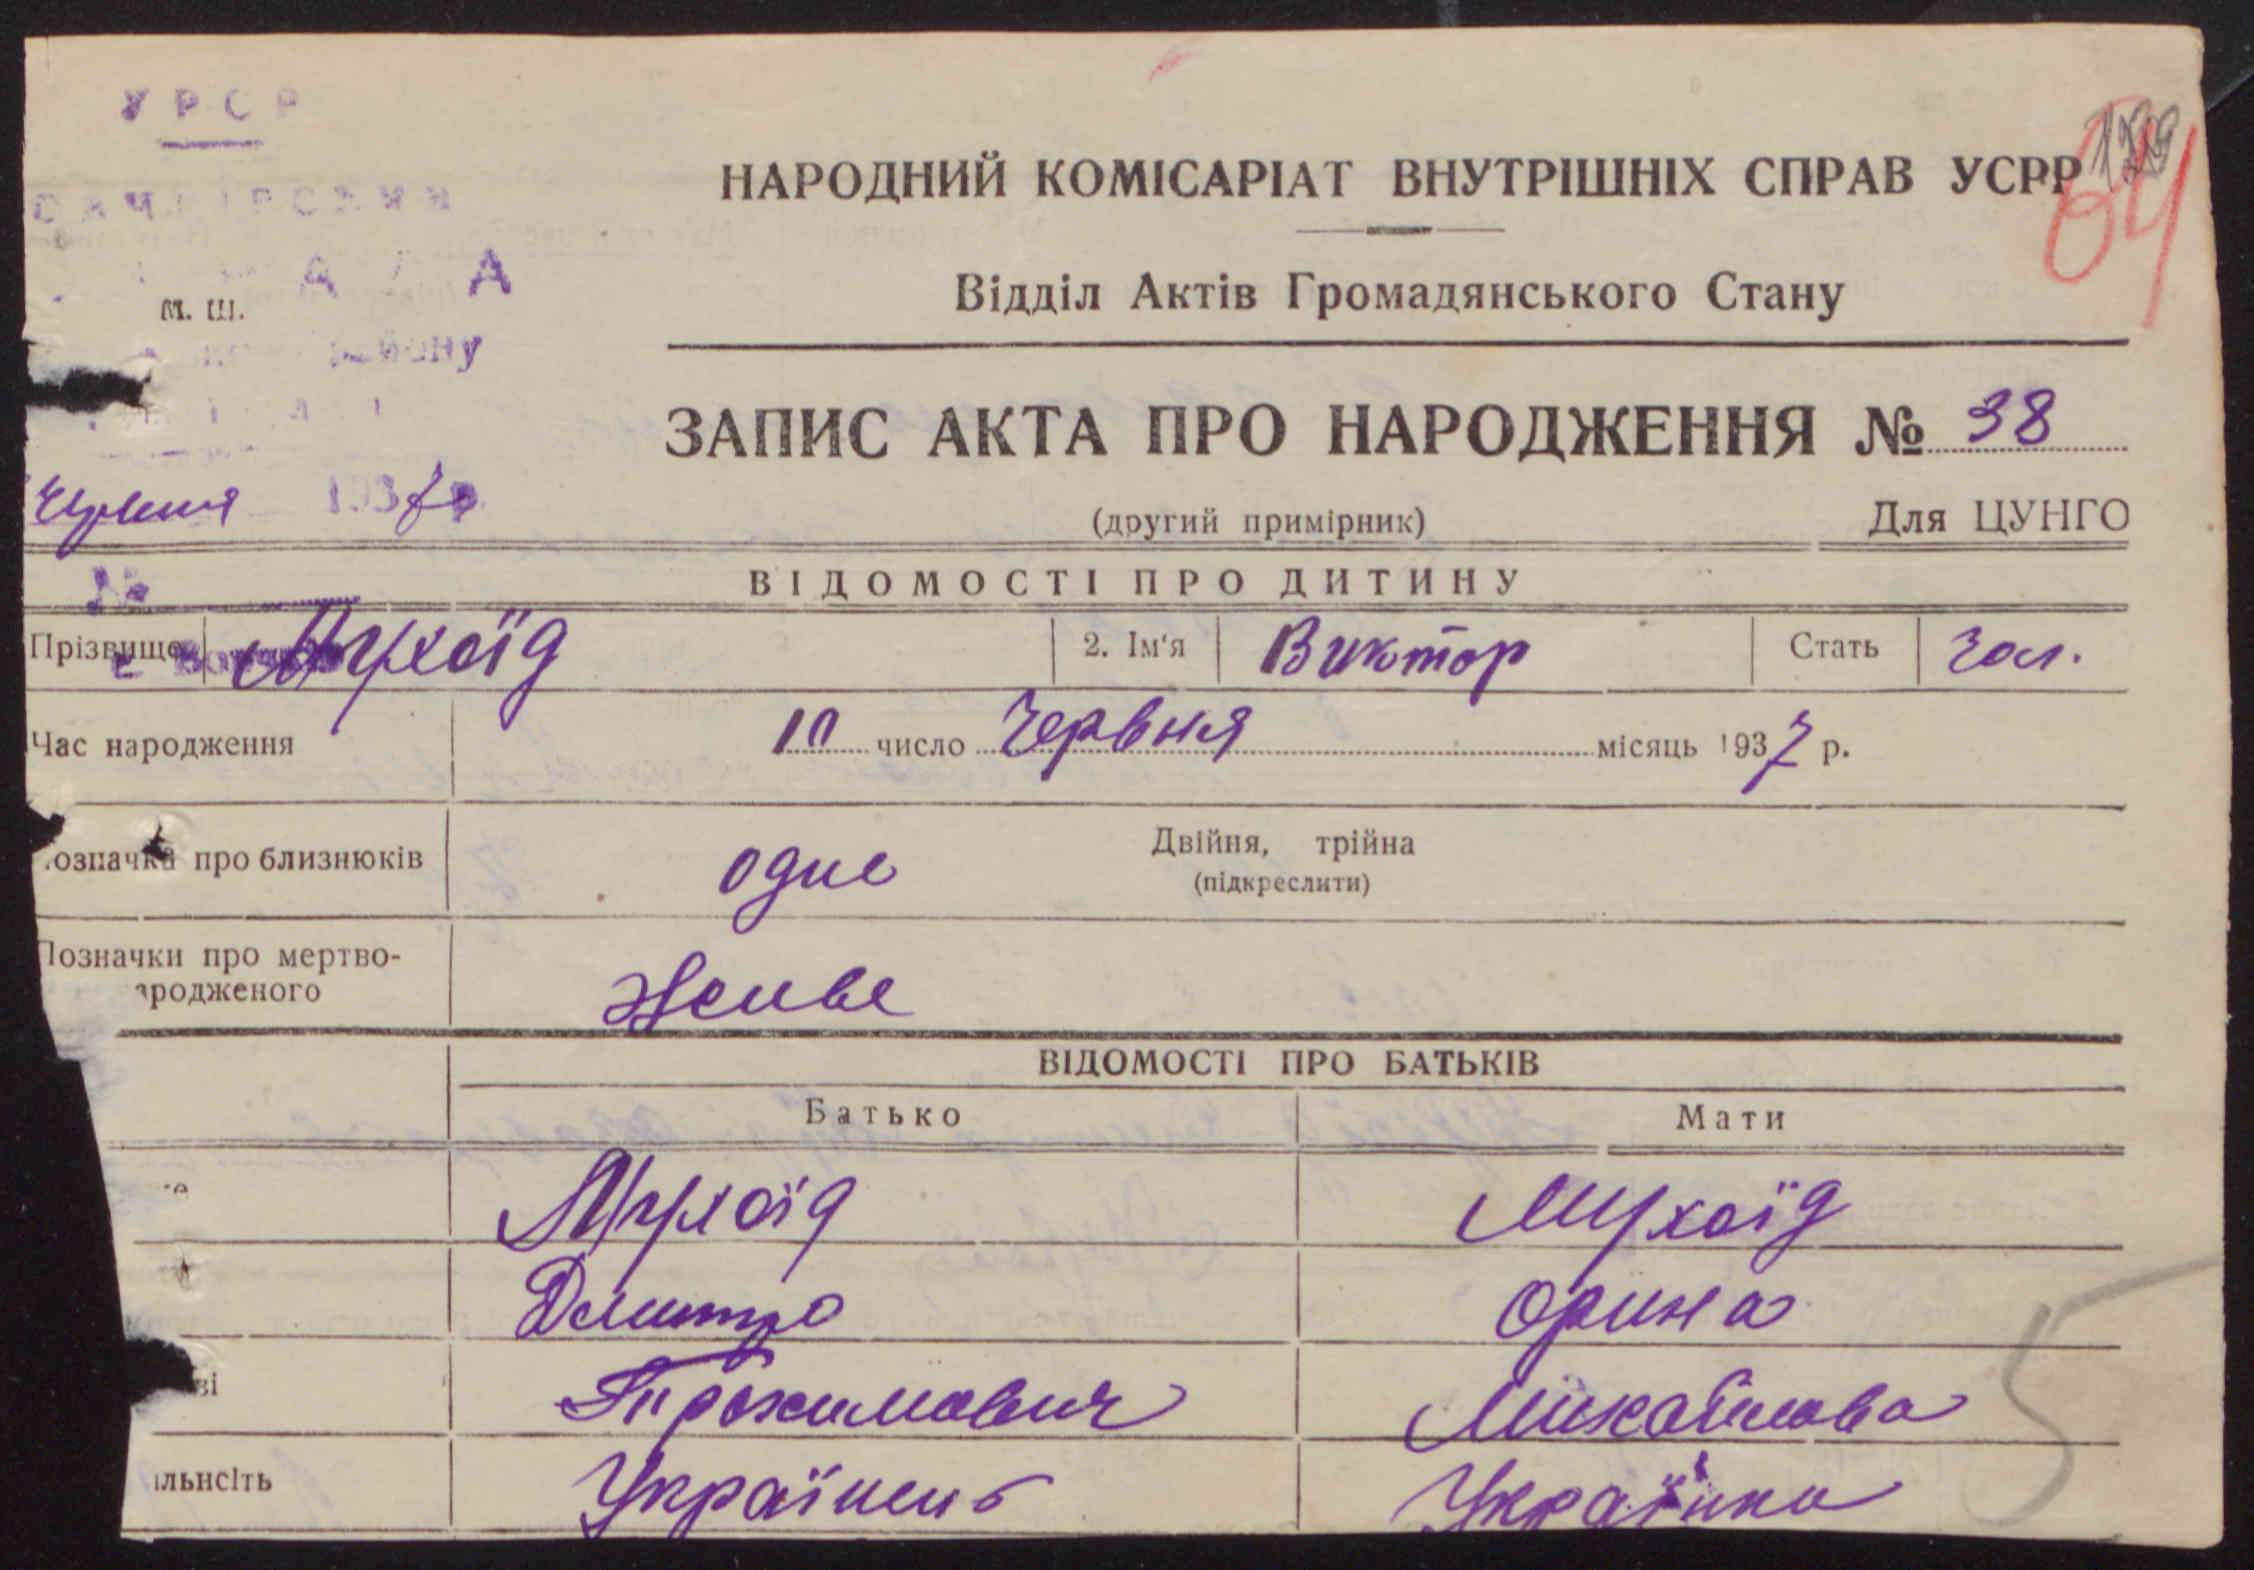 УРСР
НАРОДНИЙ КОМІСАРІАТ ВНУТРІШНІХ СПРАВ УСРР
64
Відділ Актів Громадянського Стану
м. ш.
району
ЗАПИС АКТА ПРО НАРОДЖЕННЯ № 38
Червня 1937р.
(другий примірник) Для ЦУНГО
№
ВІДОМОСТІ ПРО ДИТИНУ
Прізвище Мухоїд 2. Ім'я Виктор Стать Чол.
Час народження 10 число Червня місяць 1937 р.
позначка про близнюків одне Двійня, трійна
(підкреслити)
Позначки про мертво-
ародженого живе
ВІДОМОСТІ ПРО БАТЬКІВ
Батько Мати
Мухоїд Мухоїд
Дмитро Орина
ві Трохимович Михайлова
альнсіть Українець Українка
5